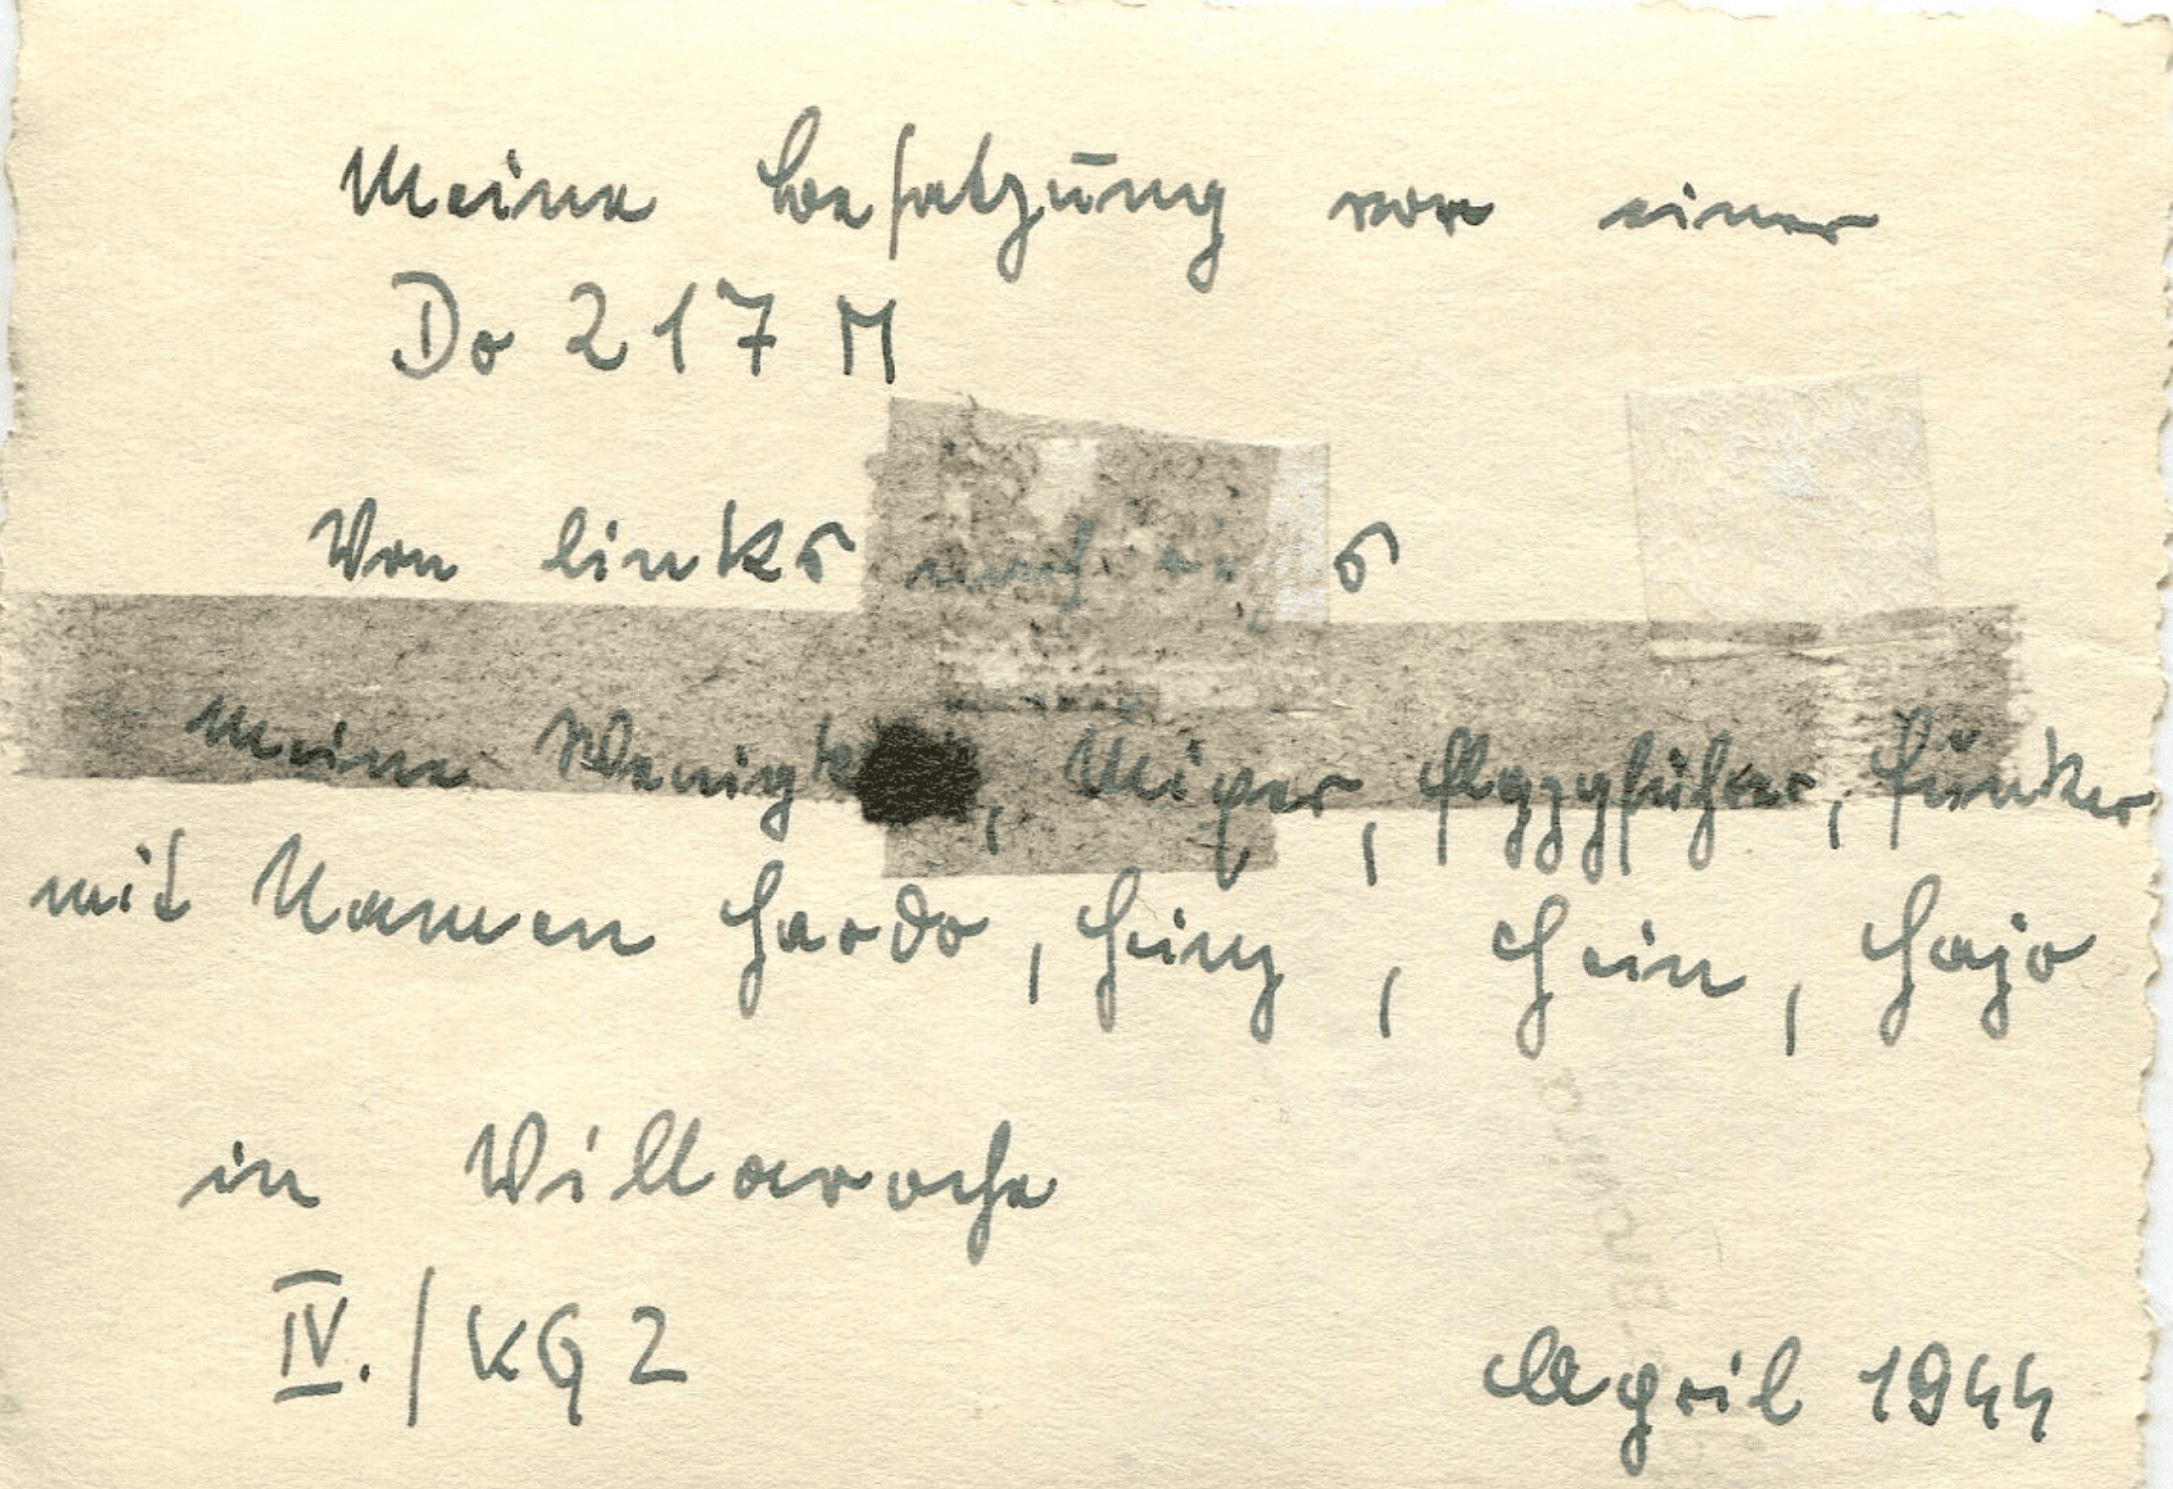 Meine Besatzung vor einer
Do 217 M
Von links nach
meine , Flgzgführer, Funker
mit Namen Hardo, Heinz, Hein, Hajo
in Villaroche
IV./KG 2 April 1944